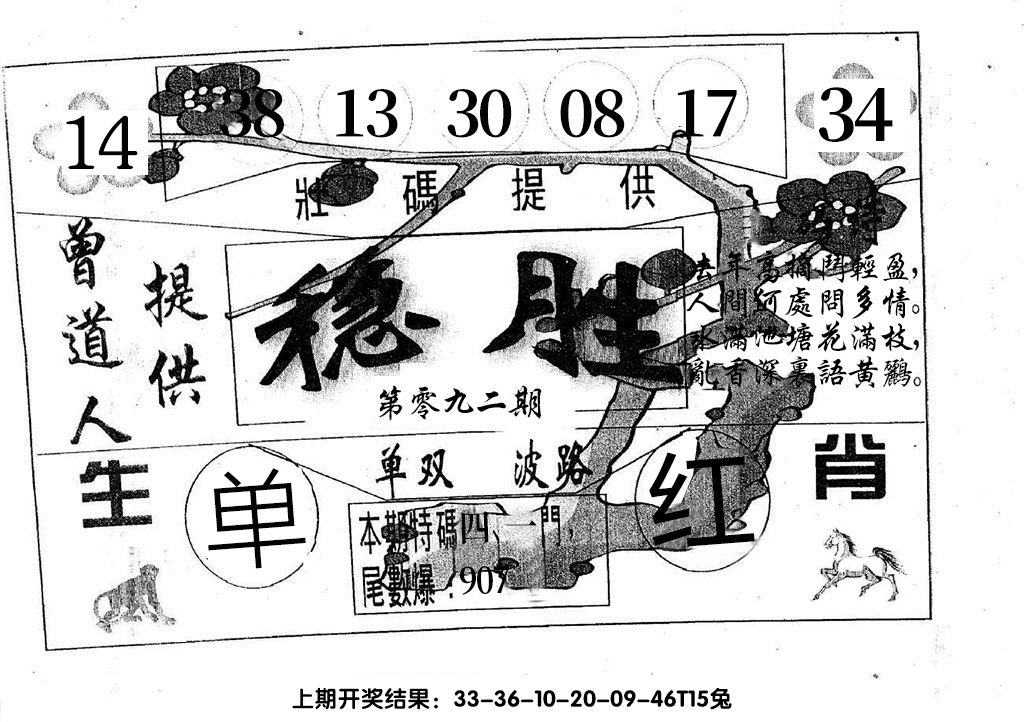 14 38 13 30 08 17 34
壯碼提供
曾道人
提供
稳胜
第零九二期
詩
去年高摘鬥輕盈，
人間何處問多情。
水滿池塘花滿枝，
亂香深裏語黃鸝。
单双 波路
生肖
单
红
本期特碼四、一門，
尾數爆：907
上期开奖结果：33-36-10-20-09-46T15兔